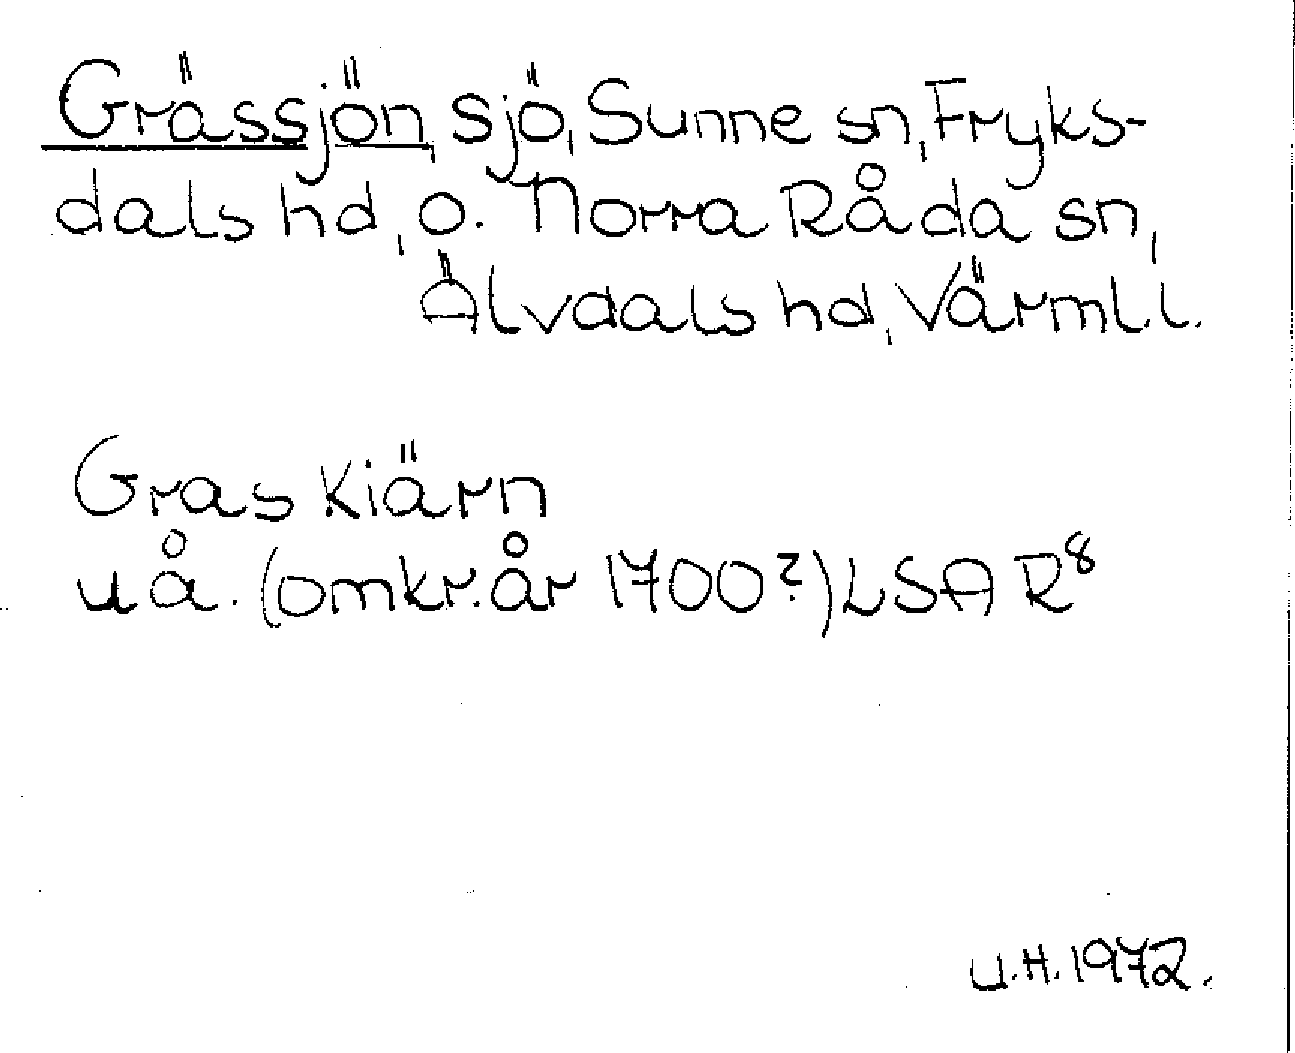 Grässjön, sjö, Sunne sn, Fryks-
dals hd, o. Norra Råda sn,
Älvdals hd, Värml.l.
Gras Kiärn
u å. (omkr. år 1700?) LSA R8
U.H. 1972.